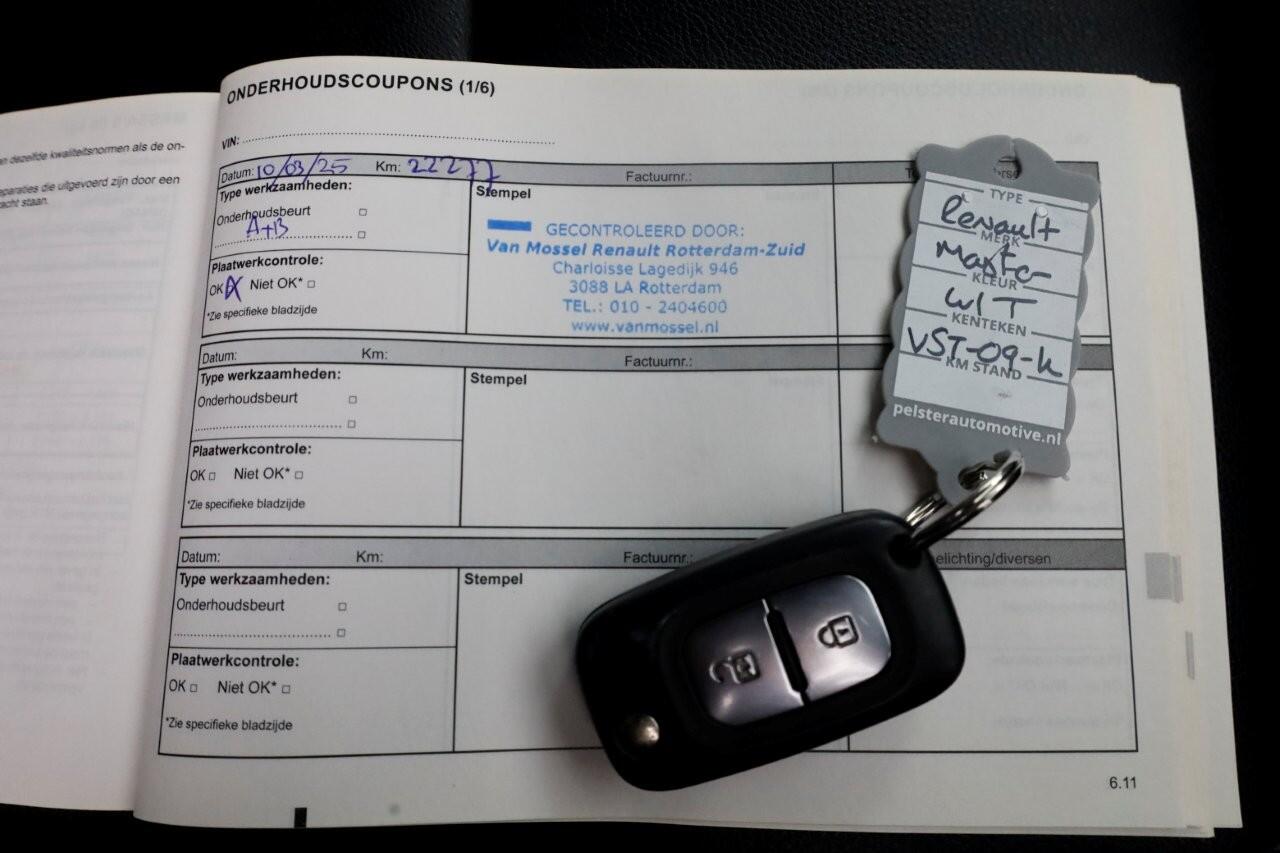 an dezelfde kwaliteitsnormen als de on-
eparaties die uitgevoerd zijn door een
acht staan.
ONDERHOUDSCOUPONS (1/6)
VIN:
Datum: 10/03/25 Km: 22277 Factuurnr.:
Type werkzaamheden:
Onderhoudsbeurt
A+B
Plaatwerkcontrole:
OK X Niet OK*
*Zie specifieke bladzijde
Stempel
GECONTROLEERD DOOR:
Van Mossel Renault Rotterdam-Zuid
Charloisse Lagedijk 946
3088 LA Rotterdam
TEL.: 010 - 2404600
www.vanmossel.nl
Datum: Km: Factuurnr.:
Type werkzaamheden:
Onderhoudsbeurt
Plaatwerkcontrole:
OK Niet OK*
*Zie specifieke bladzijde
Stempel
Datum: Km: Factuurnr.: elichting/diversen
Type werkzaamheden:
Onderhoudsbeurt
Plaatwerkcontrole:
OK Niet OK*
*Zie specifieke bladzijde
Stempel
6.11
TYPE
Renault
MERK
Master
KLEUR
WIT
KENTEKEN
VST-09-K
KM STAND
pelsterautomotive.nl